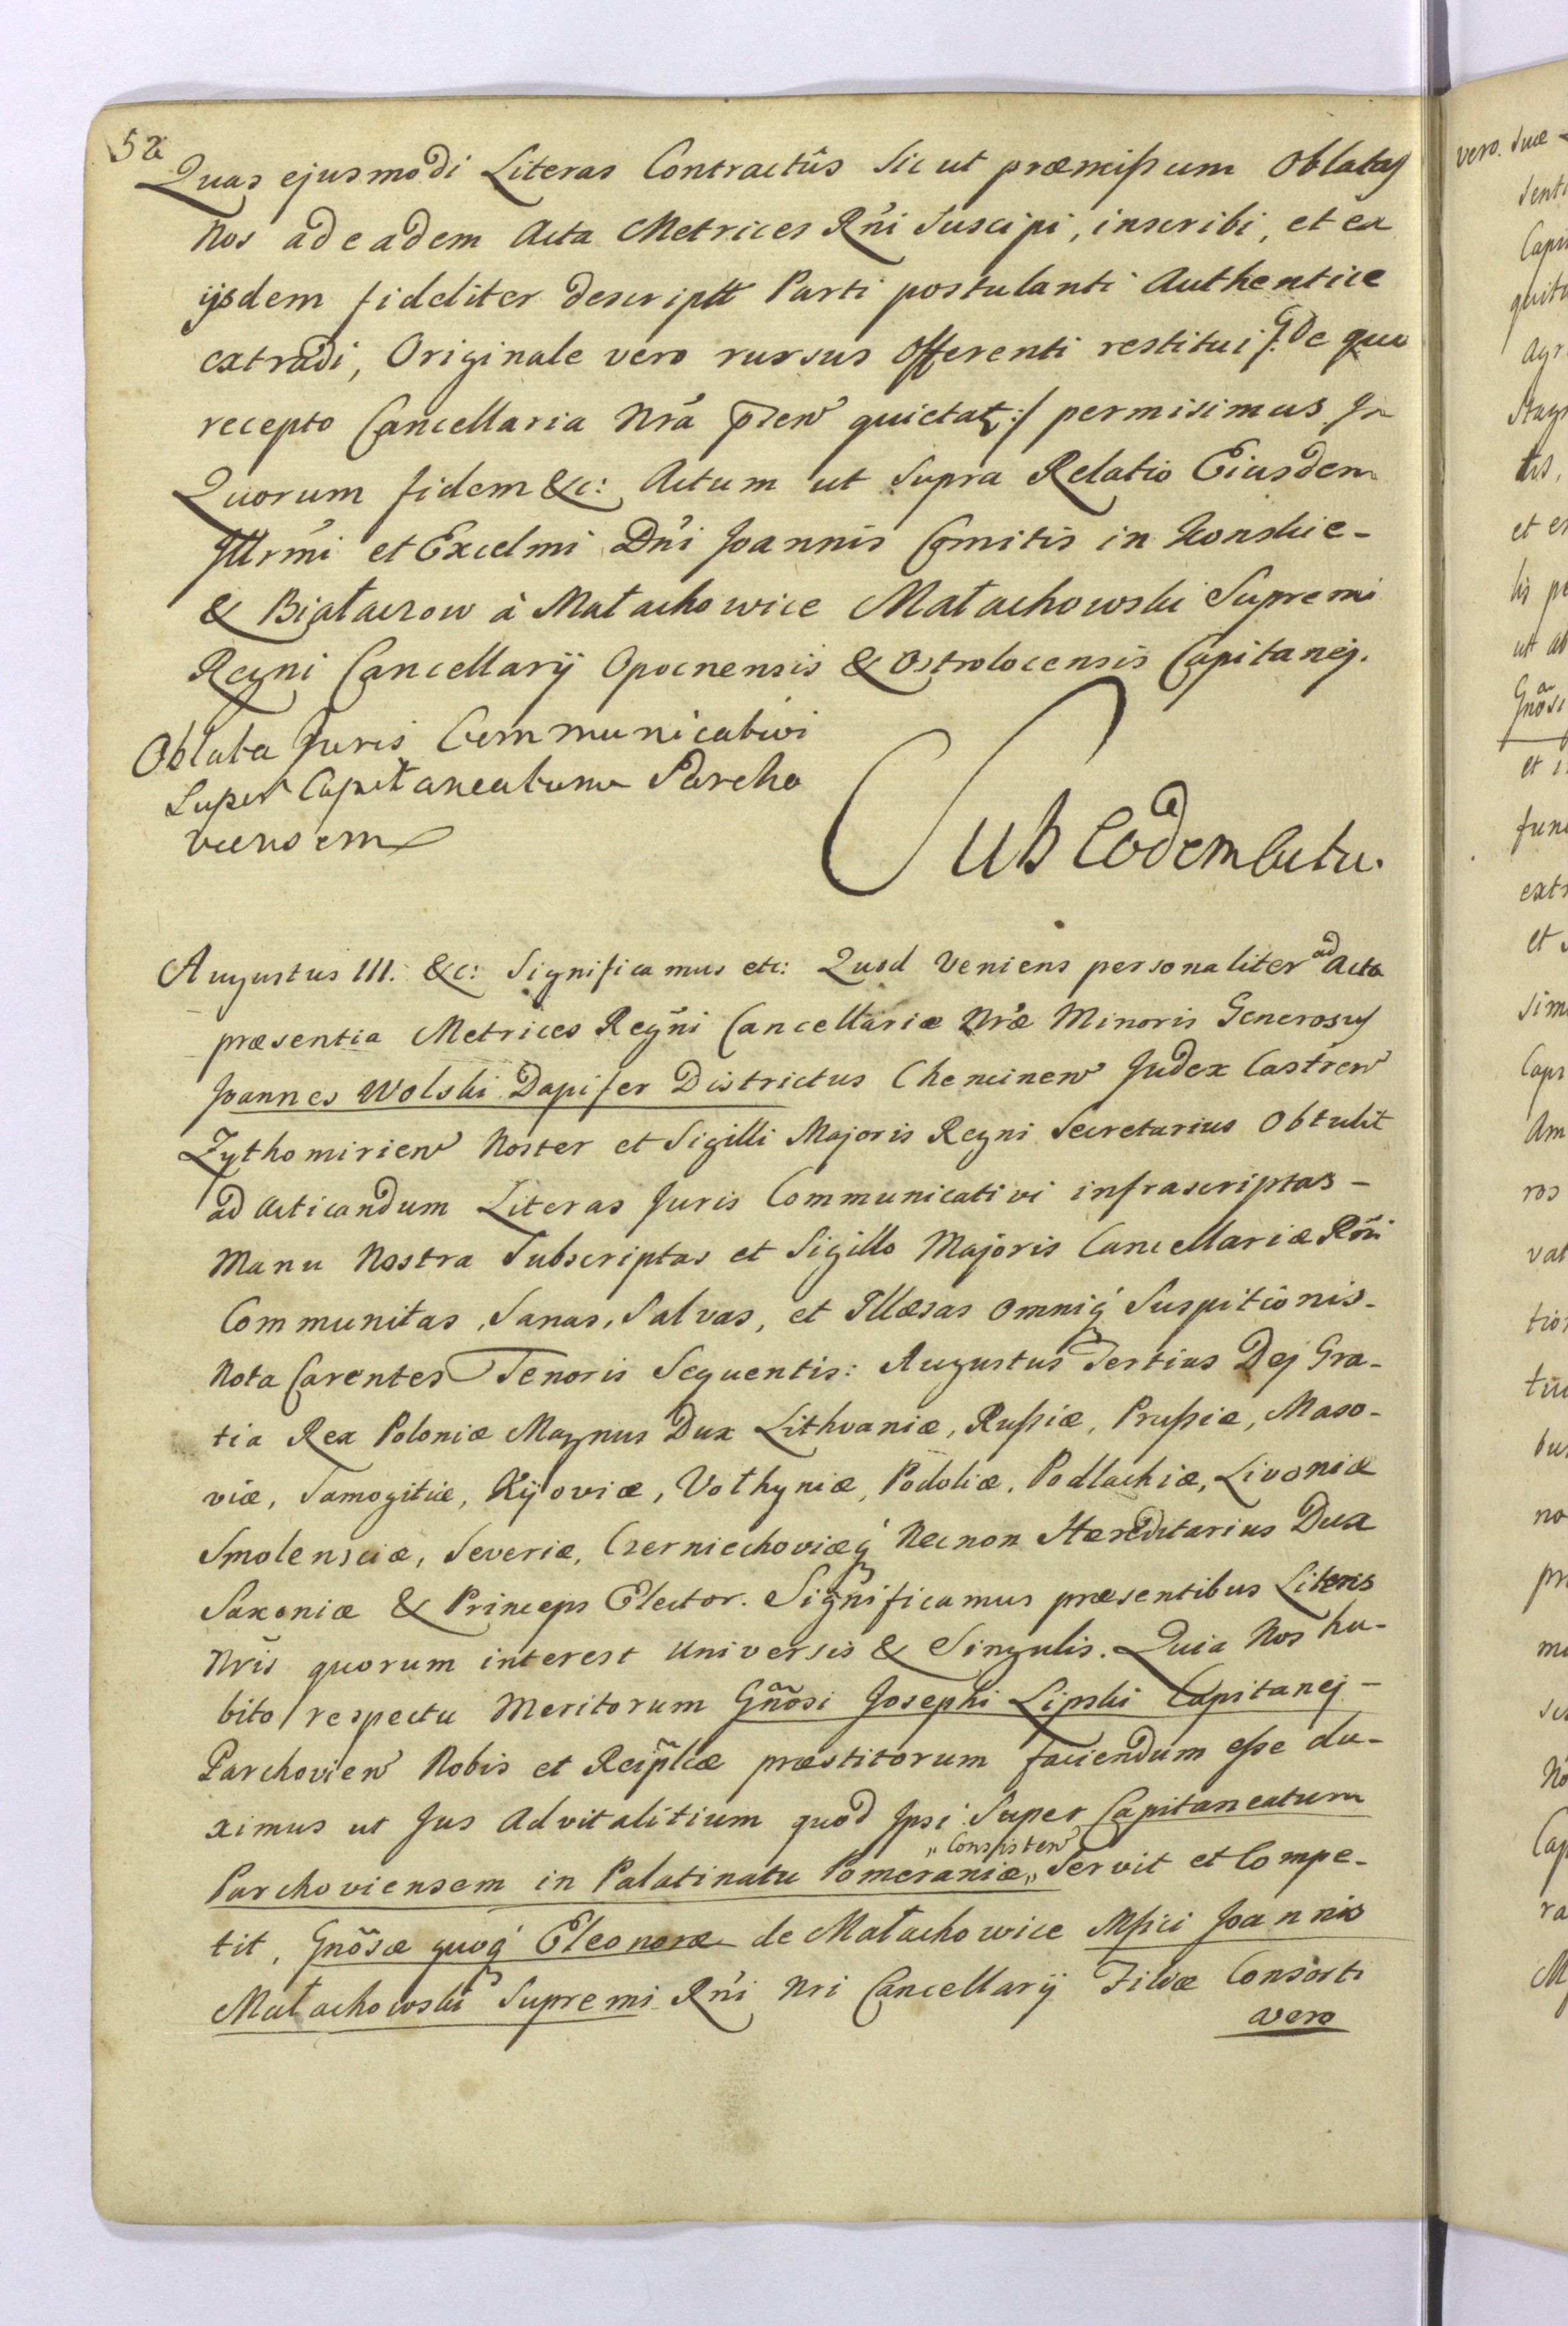 52
Quas ejusmodi Literas Contractûs Sic ut præmißum Oblatas
Nos ad eadem Acta Metrices Rñi Suscipi, inscribi, et ex
ijsdem fideliter descriptt Parti postulanti Authentice
extradi, Originale vero rursus Offerenti restitui /: De quo
recepto Cancellaria Nrã quietat :/ permisimus In
Quorum fidem &c: Actum ut Supra Relatio Eiusdem
Illrmi et Excelmi Dñi Joannis Comitis in Konskie -
& Białaczow à Małachowice Małachowski Supremi
Regni Cancellarÿ Opocnensis & Ostrolocensis Capitanej.
Oblata Juris Communicativi
Super Capitaneatum Parcho
viensem
Sub Eodem Actu.
Augustus III. &c: Significamus etc: Quod Veniens personaliter ad Acta
præsentia Metrices Regñi Cancellariæ Nræ Minoris Generosus
Joannes Wolski Dapifer Districtus Chencinen Judex Castren
Zythomirien Noster et Sigilli Majoris Regni Secretarius Obtulit
ad Acticandum Literas Juris Communicativi infrascriptas -
Manu Nostra Subscriptas et Sigillo Majoris Cancellariæ Rñi
Communitas, Sanas, Salvas, et Illæsas omniq́ Suspitionis -
Nota Carentes Tenoris Sequentis: Augustus Tertius Dej Gra-
tia Rex Poloniæ Magnus Dux Lithvaniæ, Rußiæ, Prußiæ, Maso-
viæ, Samogitiæ, Kÿoviæ, Vołhyniæ, Podoliæ, Podlachiæ, Livoniæ
Smolensciæ, Severiæ, Czerniechoviæq́ Necnon Hæreditarius Dux
Saxoniæ & Princeps Elector. Significamus præsentibus Literis
Nris quorum interest Universis & Singulis. Quia Nos ha-
bito respectu Meritorum Gñosi Josephi Lipski Capitanej -
Parchovien Nobis et Reiplicæ præstitorum faciendum eße du-
ximus ut Jus Advitalitium quod Ipsi Super Capitaneatum
Parchoviensem in Palatinatu Pomeraniæ „Consisten„ Servit et Compe-
tit, Gñosæ quoq́ Eleonoræ de Małachowice Mfici Joannis
Małachowski Supremi Rñi Nri Cancellarÿ Filiæ Consorti
vero